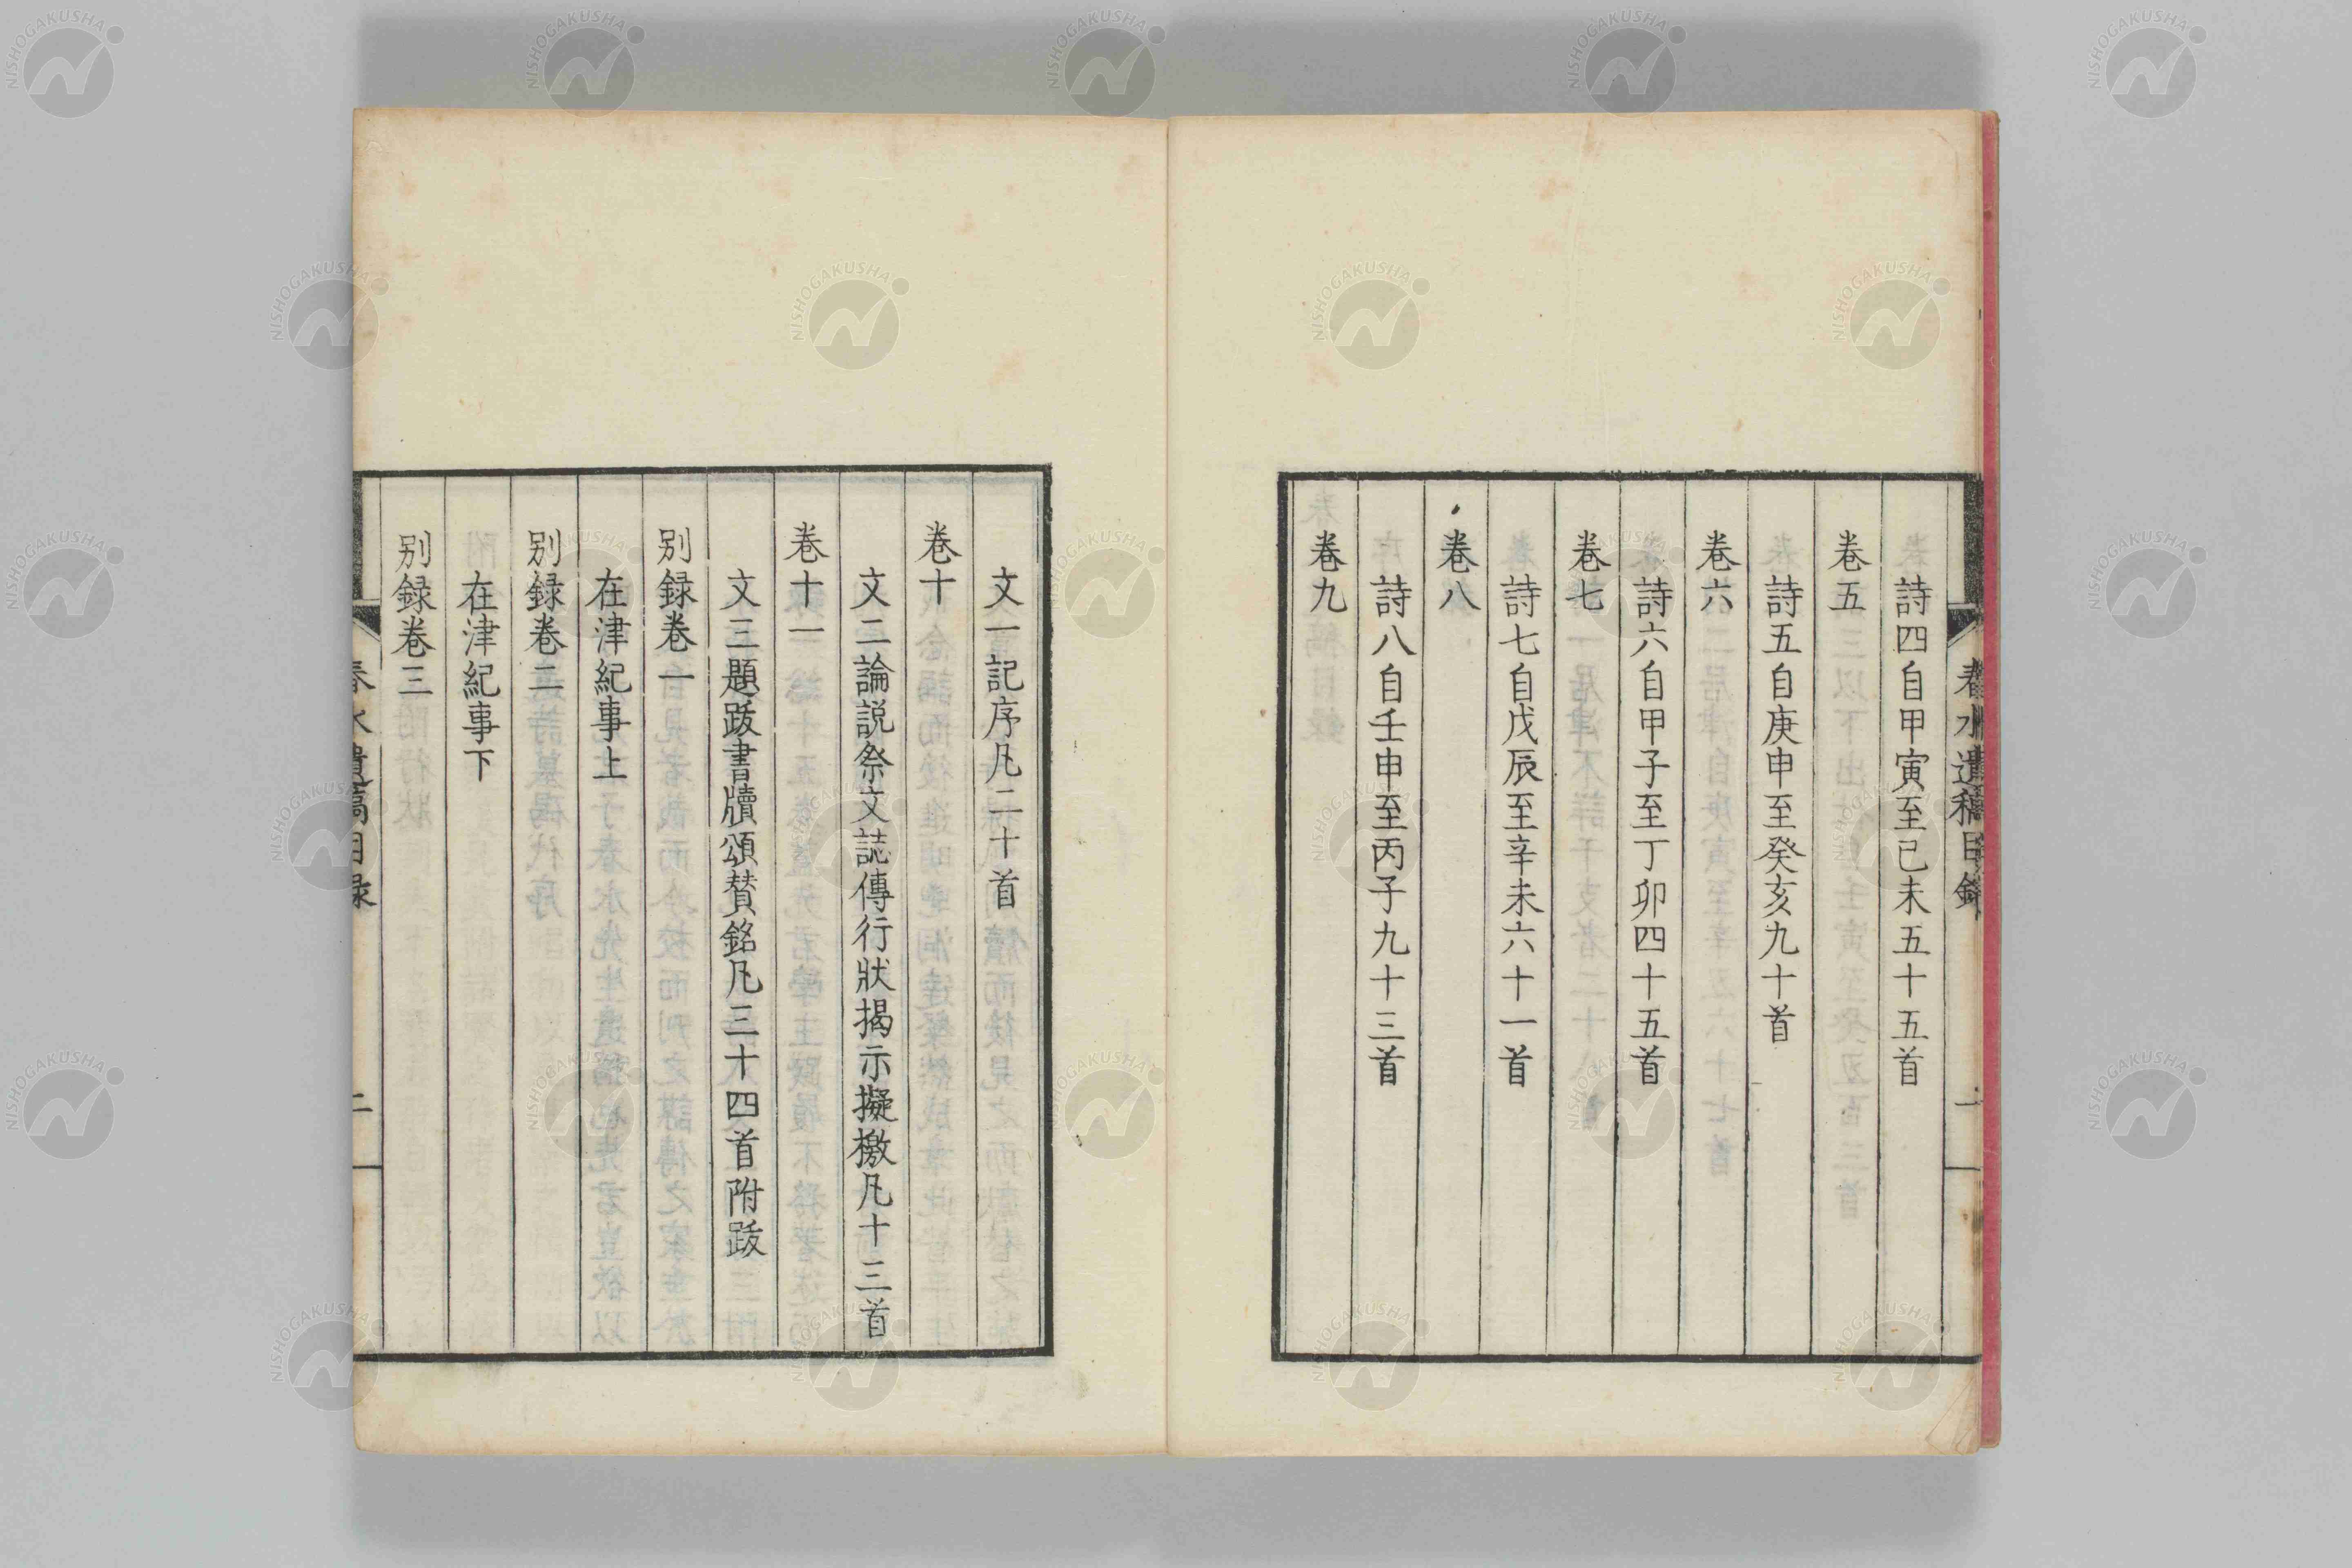 春水遺稿目錄
一
詩四自甲寅至己未五十五首
卷五
詩五自庚申至癸亥九十首
卷六
詩六自甲子至丁卯四十五首
卷七
詩七自戊辰至辛未六十一首
卷八
詩八自壬申至丙子九十三首
卷九
文一記序凡二十首
卷十
文二論説祭文誌傳行狀揭示擬檄凡十三首
卷十一
文三題跋書牘頌賛銘凡三十四首附跋
别録卷一
在津紀事上
别録卷二
在津紀事下
别録卷三
春水遺稿目録
二
NISHOGAKUSHA